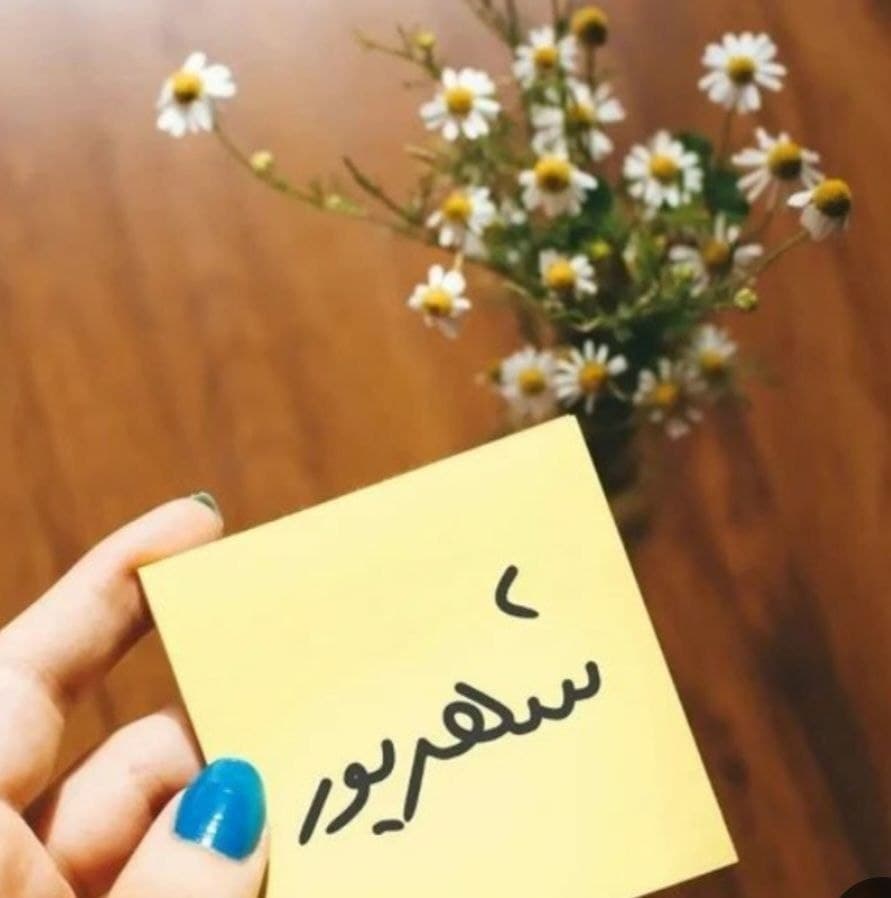 شهریور